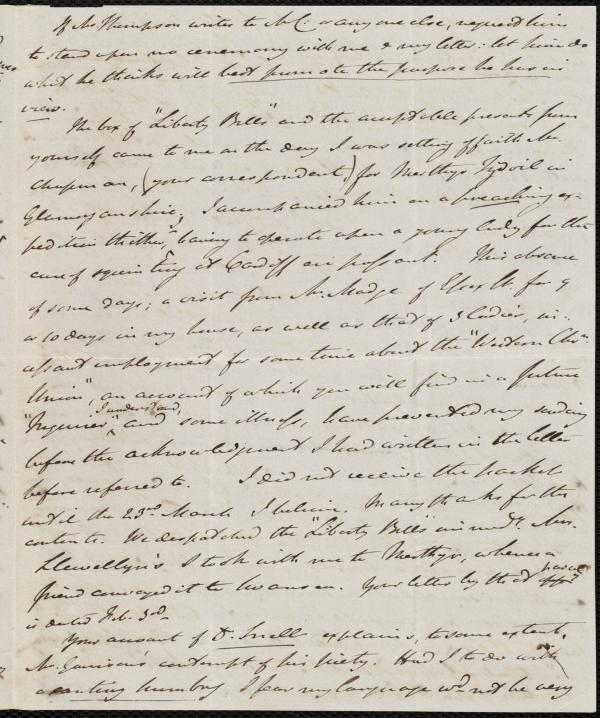 If Mr Thompson writes to Mr C: or any one else, request him
to stand upon no ceremony with me & my letter: let him do
what he thinks will best promote the purpose he has in
view.
The box of "Liberty Bells" and the acceptable presents from
yourself came to me on the day I was setting off with Mr.
Chapman, (your correspondent,) for Merthyr Tydvil in
Glamorganshire; I accompanied him on a preaching ex-
pedition thither, having to operate upon a young lady for the
cure of squinting at Cardiff en passant. This absence
of some days; a visit from Mr. Madge of Essex St. for 9
or 10 days in my house, as well as that of 3 ladies, in-
cessant employment for some time about the "Western Chn.
Union", an account of which you will find in a future
"Inquirer" I understand, and some illness, have prevented my sending
before the acknowledgment I had written in the letter
before referred to. I did not receive the packet
until the 23rd March I believe. Many thanks for the
contents. We despatched the "Liberty Bells immedy. Mrs.
Llewellyn's I took with me to Merthyr, whence a
friend conveyed it to Swansea. Your letter by that parcel
is dated Feb. 3rd.
Your account of Dr. Snell explains, to some extent,
Mr. Garrison's contempt of his piety. Had I to do with
a canting humbug I fear my language wd. not be very